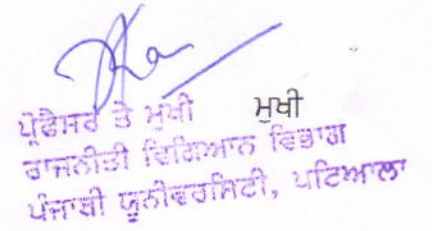 ਪ੍ਰੋਫੈਸਰ ਤੇ ਮੁੱਖੀ ਮੁਖੀ
ਰਾਜਨੀਤੀ ਵਿਗਿਆਨ ਵਿਭਾਗ
ਪੰਜਾਬੀ ਯੂਨੀਵਰਸਿਟੀ, ਪਟਿਆਲਾ